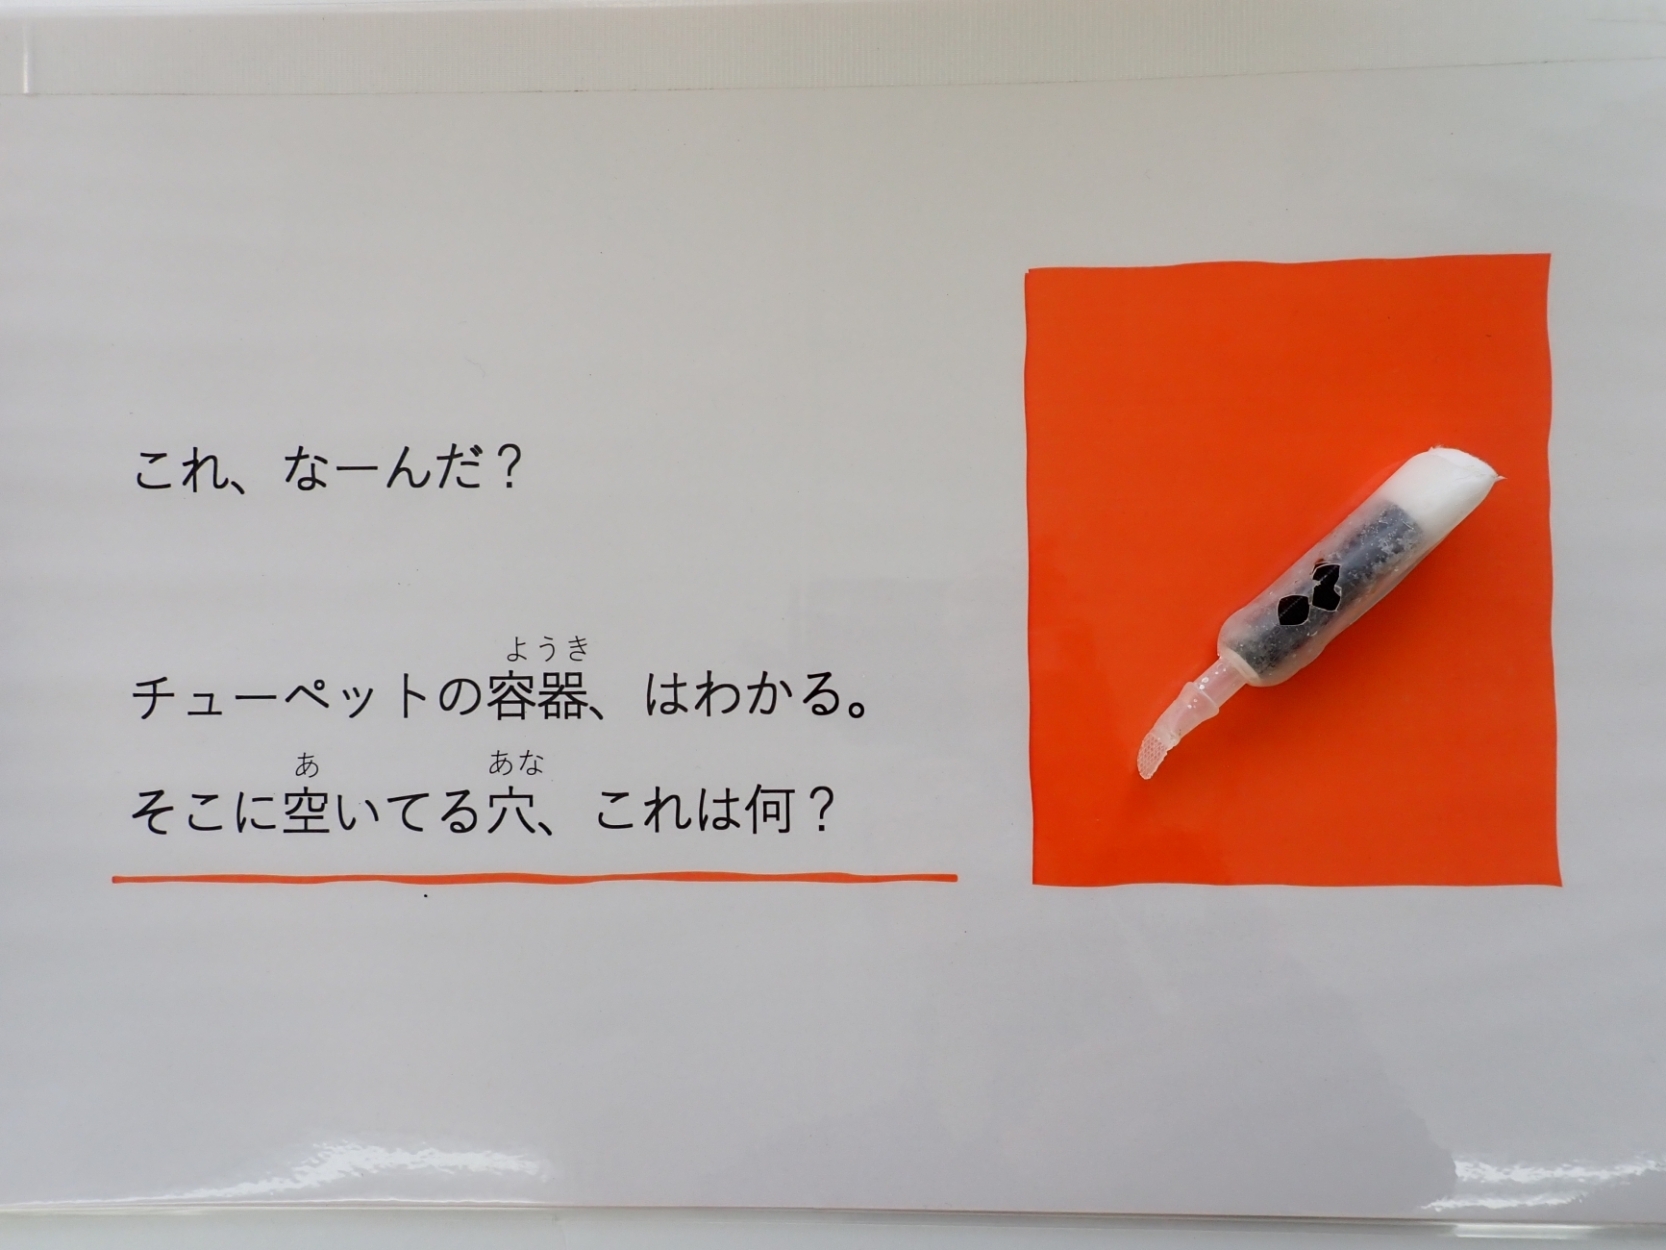 これ、なーんだ？
ようき
チューペットの容器、はわかる。
あ あな
そこに空いてる穴、これは何？